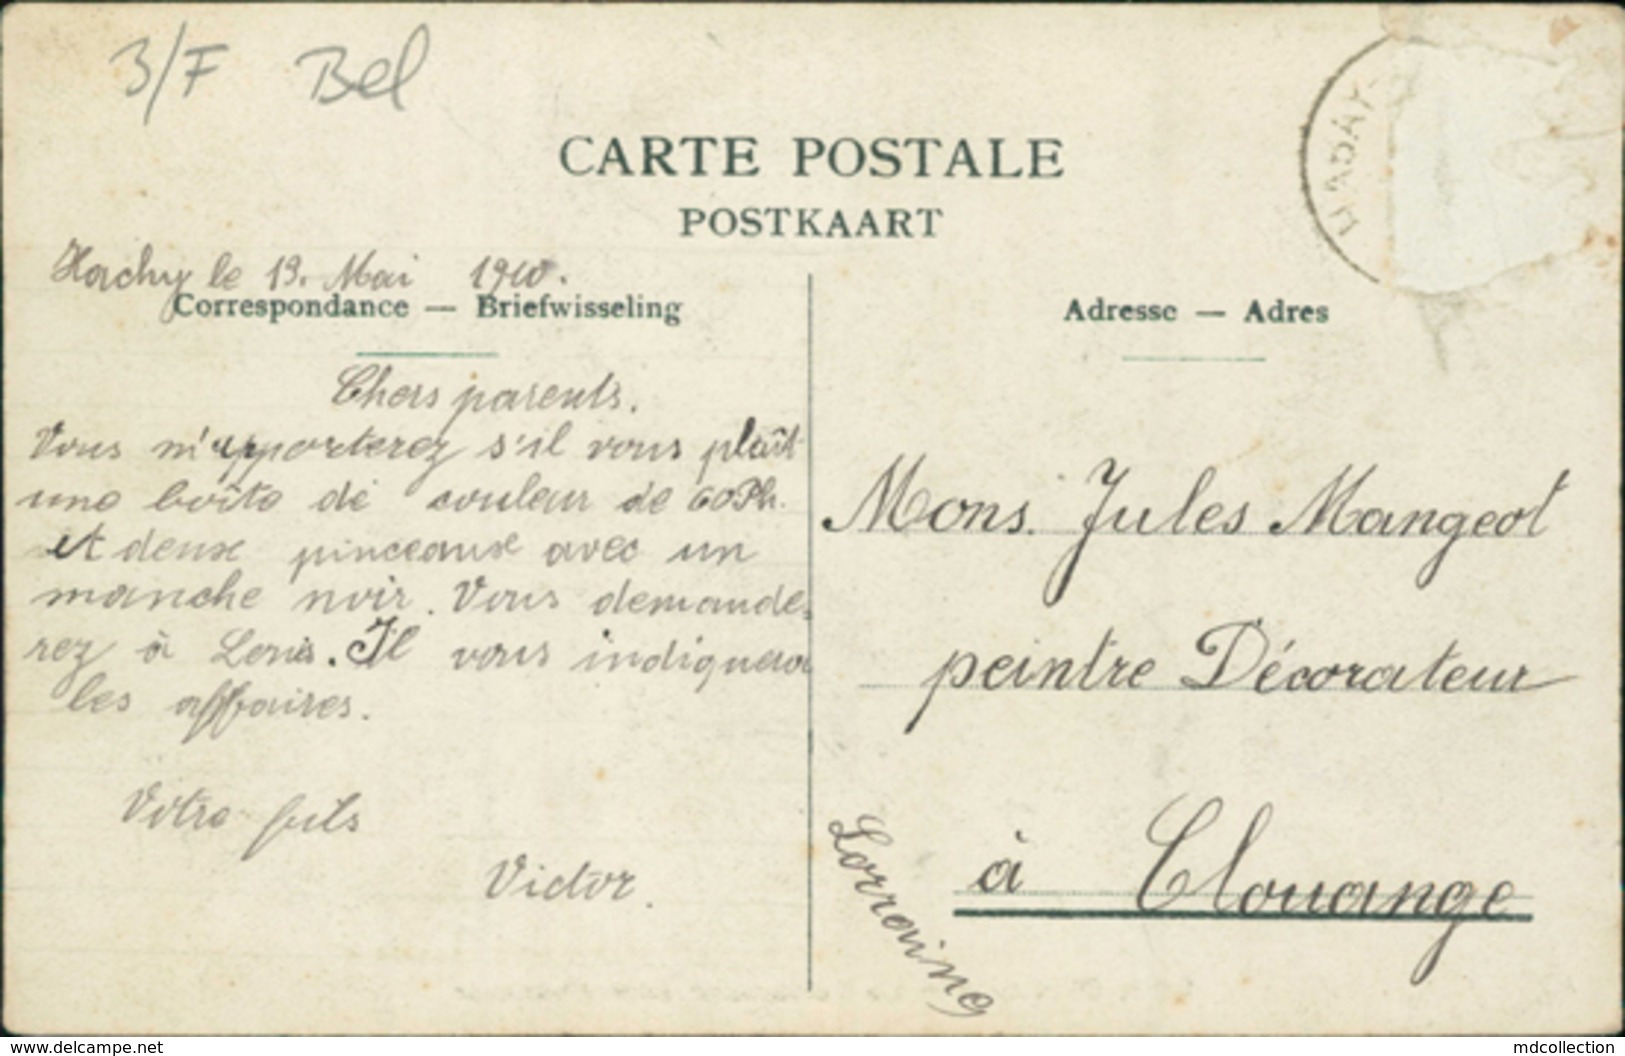 3/F Bel
HABAY
CARTE POSTALE
POSTKAART
Hachy le 19. Mai 1910.
Correspondance — Briefwisseling
Adresse — Adres
Chers parents.
Vous m'apporterez s'il vous plaît
une boîte de couleur de 60 Ph.
et deux pinceaux avec un
manche noir. Vous demande-
rez à Louis. Il vous indiquera
les affaires.
Votre fils
Victor.
Mons. Jules Mangeot
peintre Décorateur
à Clouange
Lorraine
www.delcampe.net
mdcollection